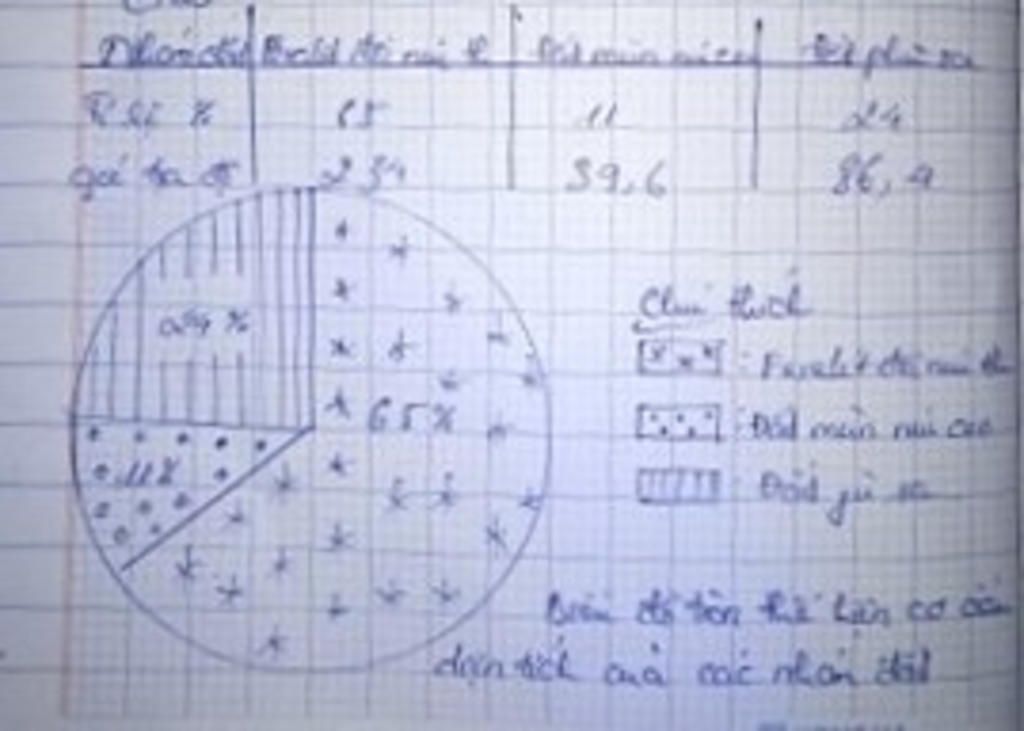 Nhóm đất Feralit đồi núi th Đất mùn núi cao Đất phù sa
Tỉ lệ % 65 11 24
góc tâm độ 234 39,6 86,4
24%
65%
11%
Chú thích
: Feralit đồi núi th
: Đất mùn núi cao
: Đất phù sa
Biểu đồ tròn thể hiện cơ cấu
diện tích của các nhóm đất